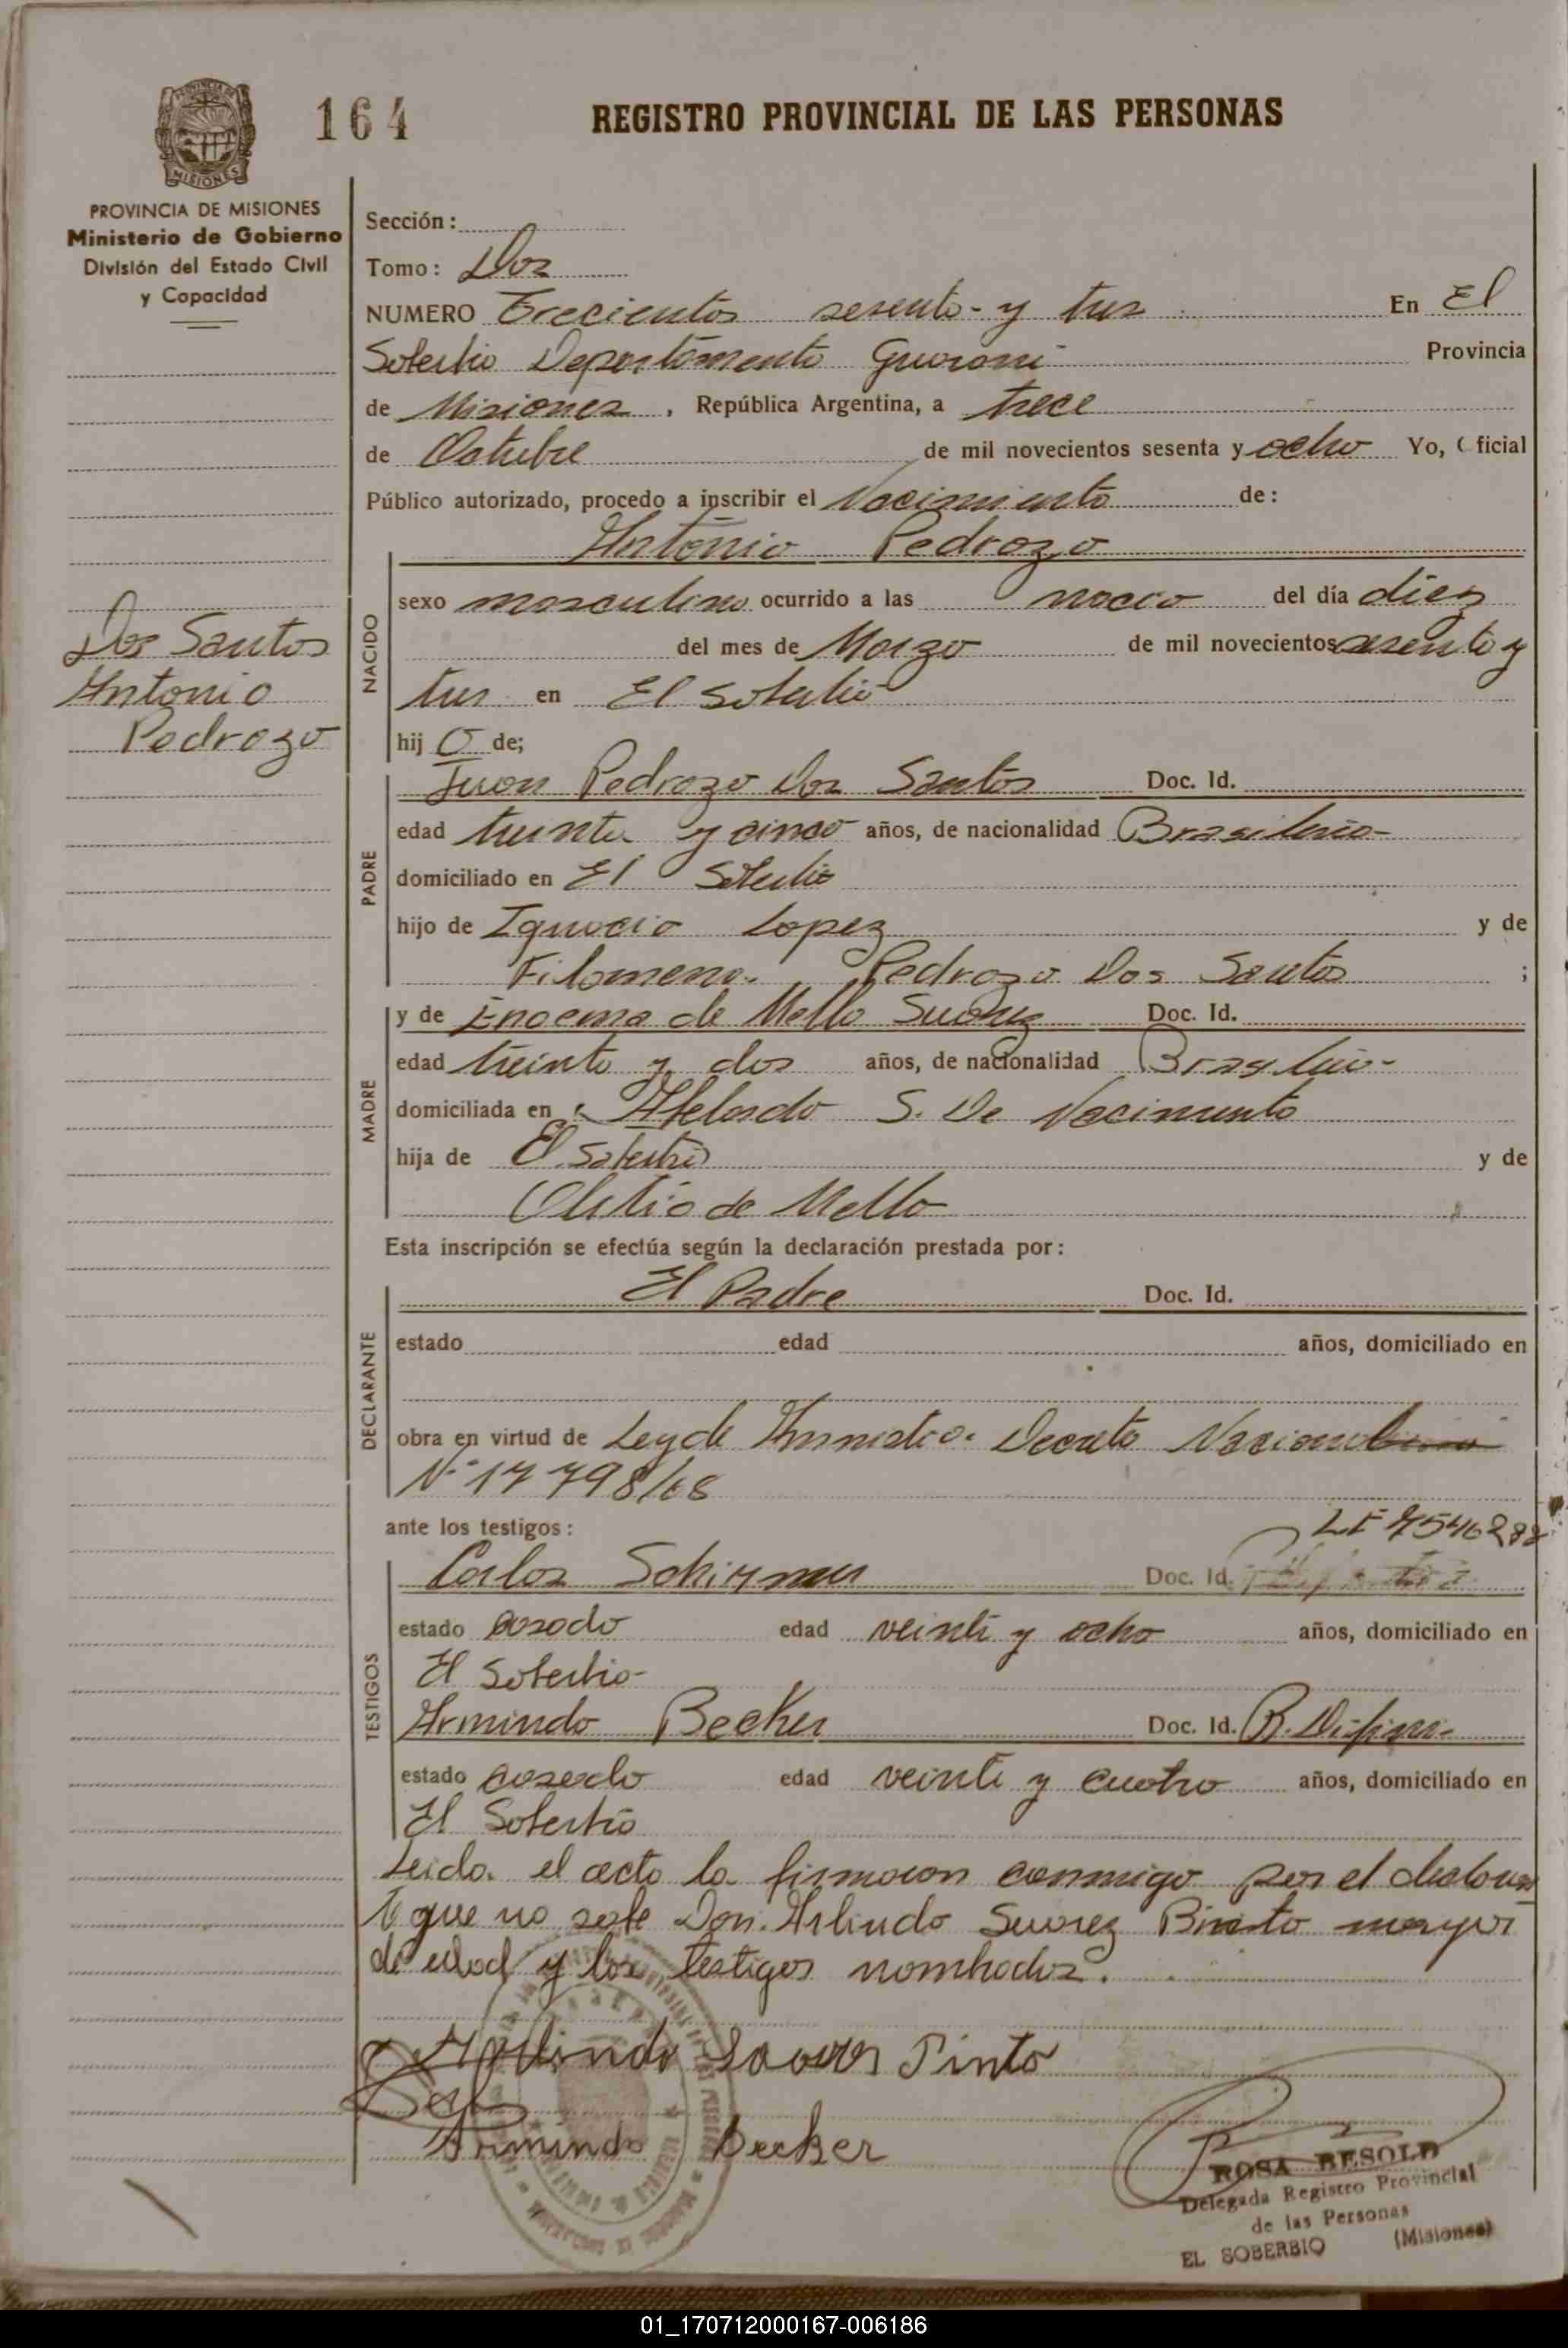 164
REGISTRO PROVINCIAL DE LAS PERSONAS
PROVINCIA DE MISIONES
Ministerio de Gobierno
División del Estado Civil
y Capacidad
Sección:
Tomo: Dos
NUMERO Trecientos sesenta y tres En El
Soberbio Departamento Guarani Provincia
de Misiones, República Argentina, a trece
de Octubre de mil novecientos sesenta y ocho Yo, Oficial
Público autorizado, procedo a inscribir el Nacimiento de:
Antonio Pedrozo
Dos Santos
Antonio
Pedrozo
NACIDO
sexo masculino ocurrido a las nacio del día diez
del mes de Marzo de mil novecientos sesenta y
tres en El Soberbio
hij o de;
PADRE
Juan Pedrozo Dos Santos Doc. Id.
edad treinta y cinco años, de nacionalidad Brasilera
domiciliado en El Soberbio
hijo de Ignacio Lopez y de
Filomena Pedrozo Dos Santos ;
MADRE
y de de Mello Suarez Doc. Id.
edad treinta y dos años, de nacionalidad Brasilera
domiciliada en Abelardo S. De Nacimento
hija de El Soberbio y de
de Mello
Esta inscripción se efectúa según la declaración prestada por:
DECLARANTE
El Padre Doc. Id.
estado edad años, domiciliado en
obra en virtud de Ley de Amnistia Decreto Nacional
Nº 17798/68
ante los testigos:
LE 7546288
TESTIGOS
Carlos Schirmer Doc. Id.
estado casado edad veinti y ocho años, domiciliado en
El Soberbio
Armindo Becker Doc. Id.
estado casado edad veinti y cuatro años, domiciliado en
El Soberbio
Leida el acta la firmaron conmigo por el
que no sabe Don Arlindo Suarez mayor
de edad y los testigos nombrados.
Arlindo Pinto
Armindo Becker
ROSA BESOLD
Delegada Registro Provincial
de las Personas
EL SOBERBIO (Misiones)
01_170712000167-006186